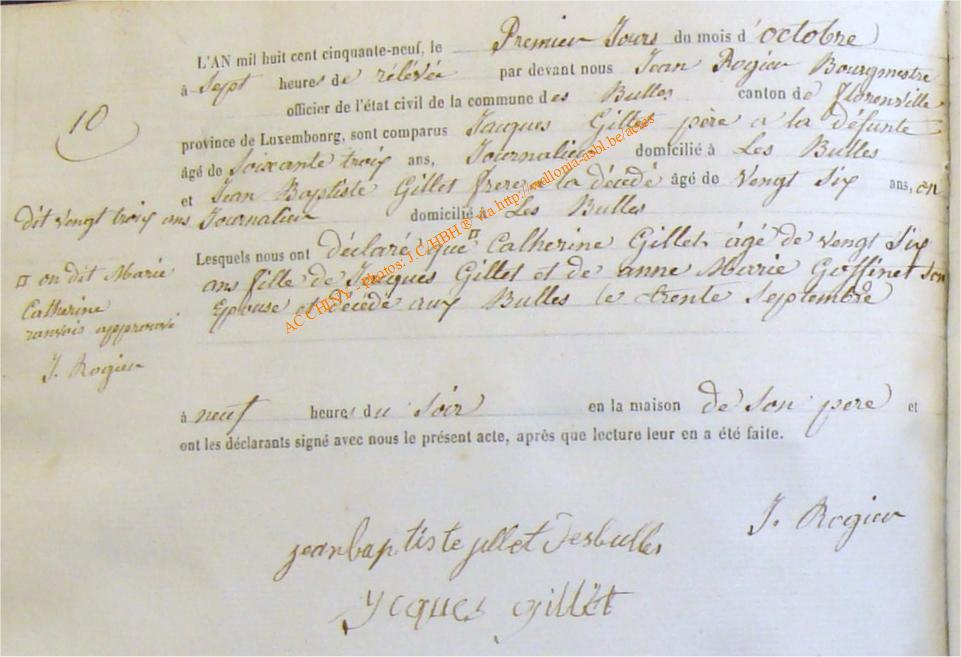 L'AN mil huit cent cinquante-neuf, le Premier Jours du mois d'octobre
à Sept heures de rélévée par devant nous Jean Rogier Bourgmestre
officier de l'état civil de la commune des Bulles canton de florenville
10
province de Luxembourg, sont comparus Jaques Gillet père a la défunte
âgé de Soixante trois ans, Journalier domicilié à Les Bulles
et Jean Baptiste Gillet frere a la décédé âgé de vengt Six ans, on
dit vengt trois ans Journalier domicilié à Les Bulles
Lesquels nous ont déclaré que ¤ Catherine Gillet âgé de vengt Six
ans fille de Jaques Gillet et de anne Marie Goffinet son
Epouse et décédé aux Bulles le trente Septembre
¤ on dit Marie
Catherine
ranvais approuvé
J. Rogier
à neuf heures du Soir en la maison de Son pere et
ont les déclarants signé avec nous le présent acte, après que lecture leur en a été faite.
J. Rogier
jeanbaptiste jillet desbulles
Ycques gillët
ACCHLVV - Photos: J C HBH ® via http://wallonia-asbl.be/actes